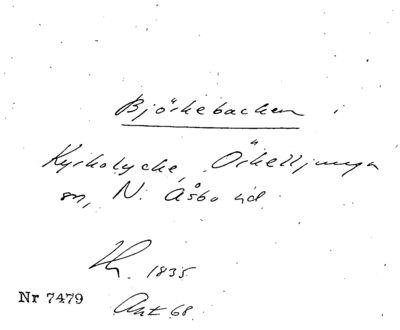 Björkebacken i
Kyrkolycke, Örkelljunga
sn, N. Åsbo hd
Uh. 1835
Nr 7479
Akt 68